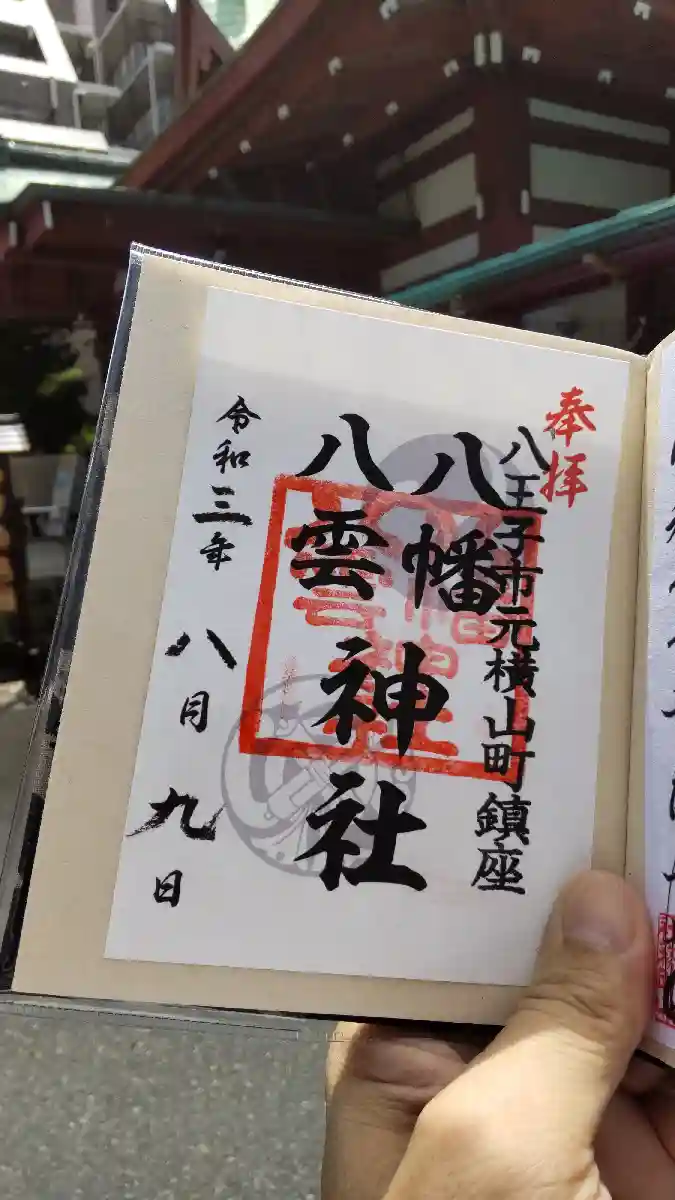 奉拝
八王子市元横山町鎮座
八幡
八雲神社
令和三年八月九日